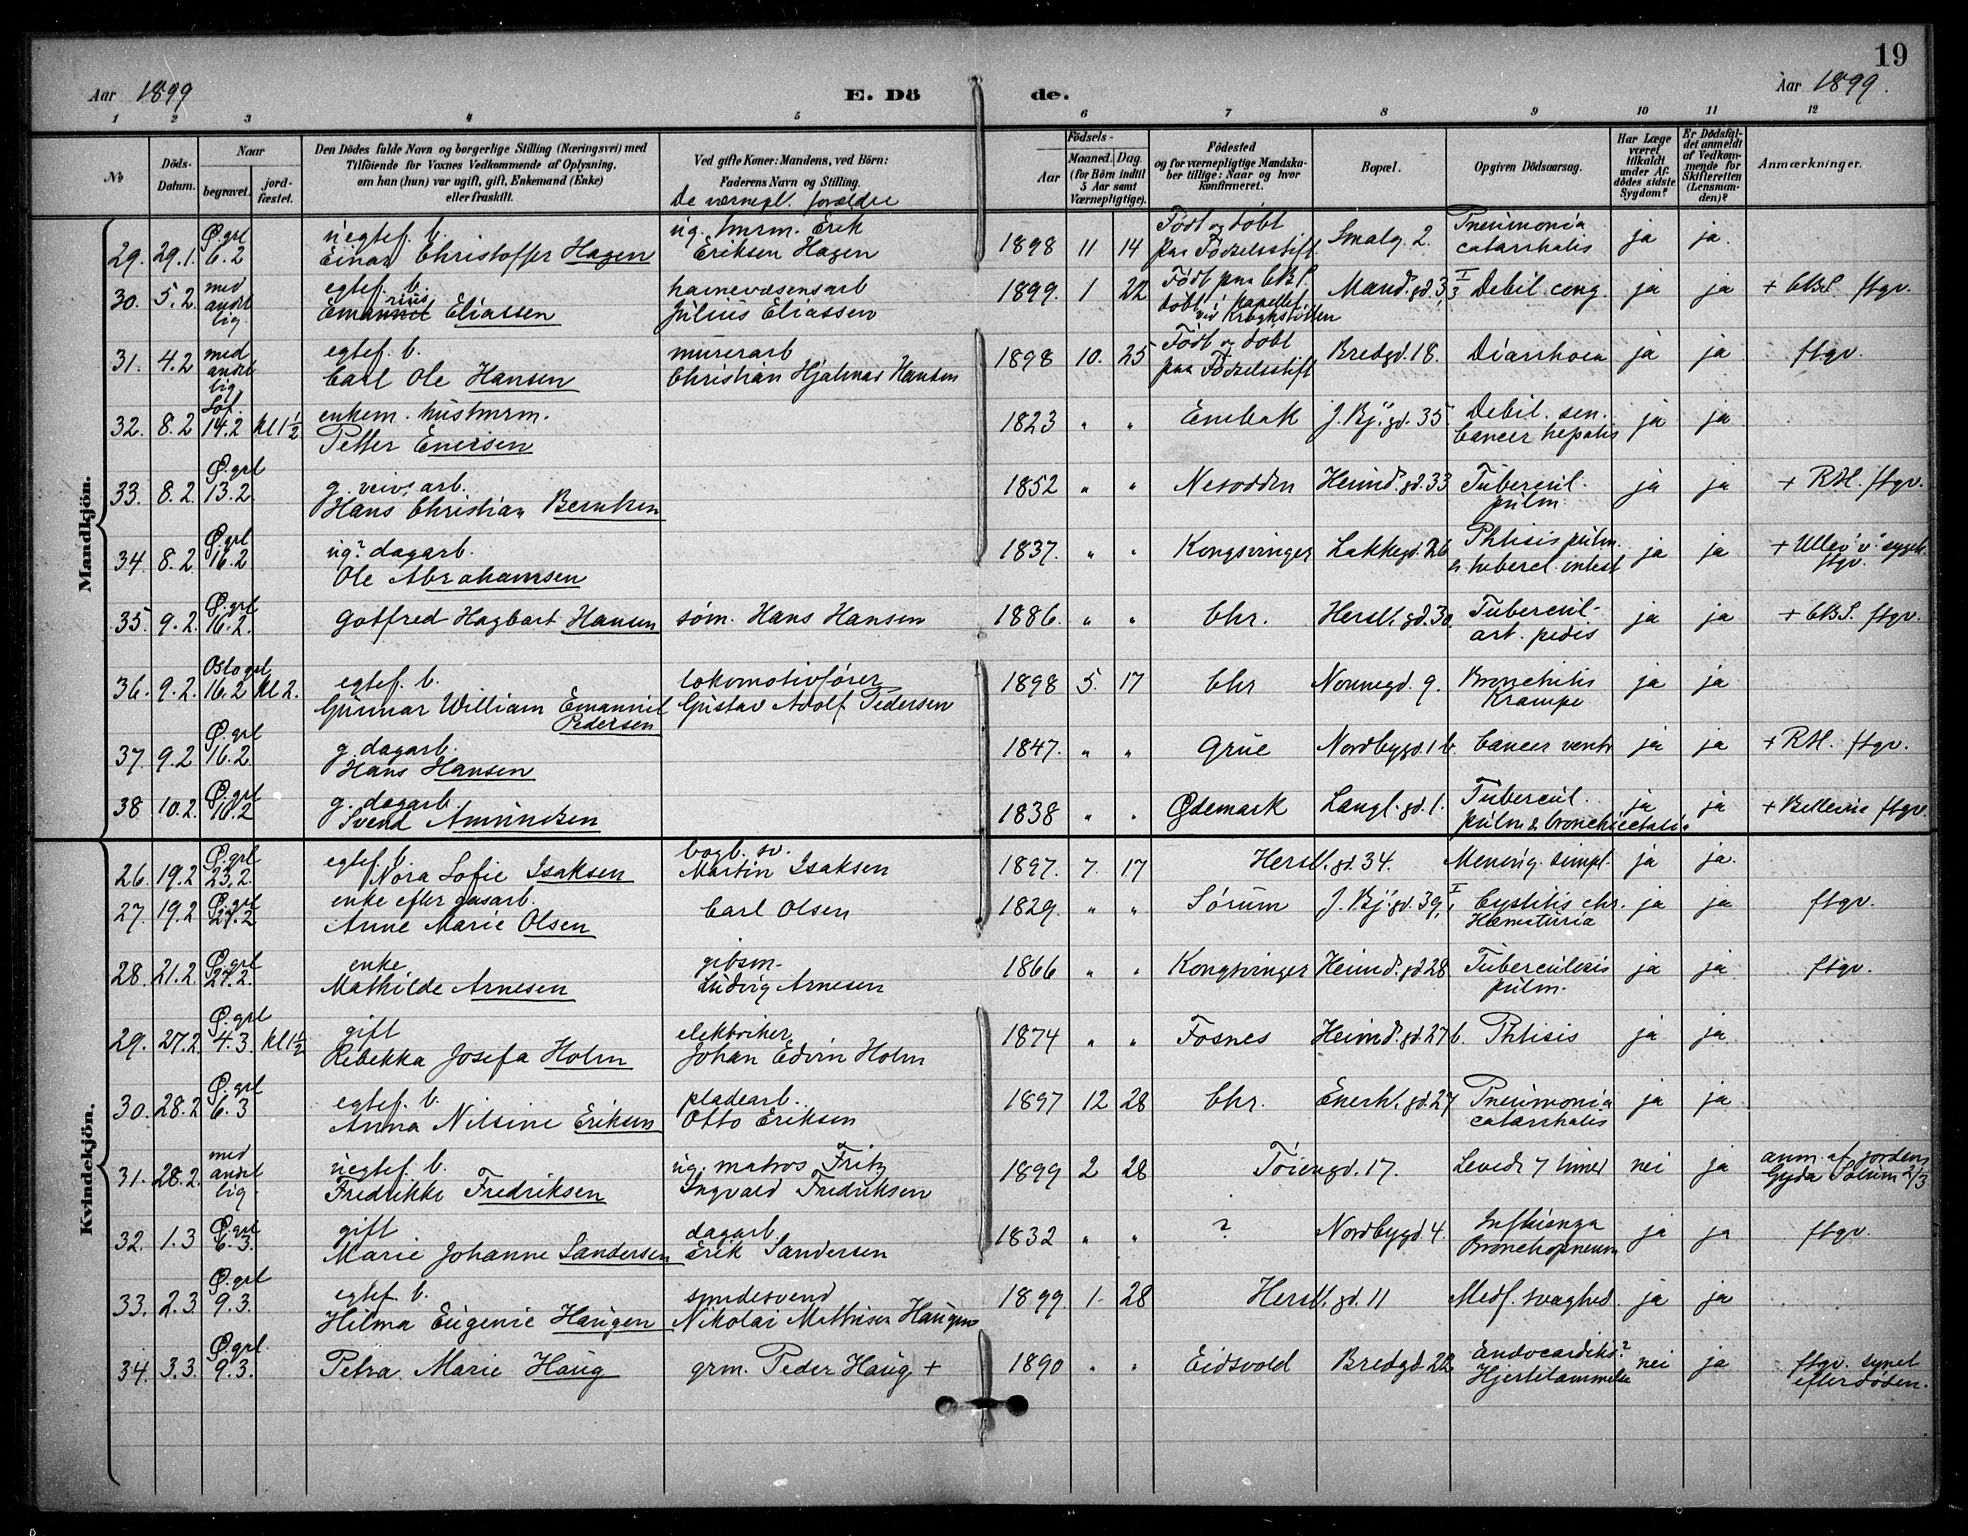 19
Aar 1899
E. Dö de.
Aar 1899.
1 2 3 4 5 6 7 8 9 10 11 12
No
Döds-Datum.
Naar begravet. jord-fæstet.
Den Dödes fulde Navn og borgerlige Stilling (Næringsvei) med Tilföiende for Voxnes Vedkommende af Oplysning, om han (hun) var ugift, gift, Enkemand (Enke) eller fraskilt.
Ved gifte Koner: Mandens, ved Börn: Faderens Navn og Stilling.
De værnepl. forældre
Födsels- Aar Maaned. Dag. (for Börn indtil 5 Aar samt Værnepligtige).
Födested og for værnepligtige Mandska-ber tillige: Naar og hvor konfirmeret.
Bopæl.
Opgiven Dödsaarsag.
Har Læge været tilkaldt under Af-dödes sidste Sygdom?
Er Dödsfal-det anmeldt af Vedkom-mende for Skifteretten (Lensman-den)?
Anmærkninger.
Mandkjön.
29. 29.1. Ø.grl 6.2 uegtef. b. Einar Christoffer Hagen ug. tmrm. Erik Eriksen Hagen 1898 11 14 Født og døbt paa Fødselsstift. Smalg. 2. Pneumonia catarrhalis ja ja.
30. 5.2. med andet lig egtef. b. Emarius Eliassen havnevæsensarb Julius Eliassen 1899. 1 22 Født paa CBS. døbt i kapellet ved Krogkstøtten Mand.gd. 33 I Debil. cong. ja ja + CBS. ftgv.
31. 4.2 med andet lig egtef. b. Carl Ole Hansen murerarb Christian Hjalmar Hansen 1898 10. 25 Født og døbt paa Fødselsstift Bredgd. 18. Diarrhoea ja ja ftgv.
32. 8.2 Sof. 14.2 kl 1½ enkem. hustmrm. Petter Enersen 1823 " " Enebak J. Bj. gd. 35 Debil. sen. Cancer hepatis ja ja
33. 8.2. Ø.grl 13.2 g. veivs.arb. Hans Christian Berntsen 1852 " " Nesodden Heimd.gd. 33 Tubercul. pulm. ja ja + RH. ftgv.
34 8.2. Ø.grl 16.2 ug? dagarb. Ole Abrahamsen 1837. " " Kongsvinger Lakkegd. 26 Phtisis pulm. & tubercl. intest ja ja + Ullev. v. sygeh. ftgv.
35. 9.2. Ø.grl 16.2. Gotfred Hagbart Hansen søm. Hans Hansen 1886. " " Chr. Hersl. gd. 30. Tubercul. art. pedis ja ja + CBS. ftgv.
36. 9.2. Oslo grl 16.2 kl 2. egtef. b. Gunnar William Emanuel Pedersen lokomotivfører Gustav Adolf Pedersen 1898 5. 17 Chr Nonnegd. 9. Bronchitis Krampe ja ja
37. 9.2 Ø.grl 16.2. g. dagarb. Hans Hansen 1847. " " Grue Nordbygd. 1 b. Cancer ventr ja ja + RH. ftgv.
38 10.2. Ø.grl 16.2 g. dagarb. Svend Amundsen 1838 " " Ødemark Langl. gd. 1. Tubercul. pulm & bronchiectasi. ja ja + Bellevue ftgv.
Kvindekjön.
26. 19.2 Ø.grl 23.2. egtef. b. Nora Sofie Isaksen bogb. sv. Martin Isaksen 1897. 7. 17 Hersl. gd. 34. Mening. simpl. ja ja.
27. 19.2 Ø.grl 27.2 enke efter gasarb. Anne Marie Olsen Carl Olsen 1829. " " Sørum J. Bj. gd. 39, I Cystitis chr. Hæmaturia ja ja ftgv.
28. 21.2. Ø.grl 27.2. enke Mathilde Arnesen gibsm. Ludvig Arnesen 1866 " " Kongsvinger Heimd. gd 28 Tuberculosis pulm. ja ja ftgv.
29. 27.2. Ø.grl 4.3 kl 1½ gift Rebekka Josefa Holm elektriker Johan Edvin Holm 1874 " " Fosnes Heimd. gd. 27 b. Phtisis ja ja
30. 28.2 Ø.grl 6.3 egtef. b. Anna Nilsine Eriksen pladearb. Otto Eriksen 1897 12 28 Chr. Enerh. gd. 27 Pneumonia catarrhalis ja ja
31. 28.2. med andet lig. uegtef. b. Fredrikke Fredriksen ug. matros Fritz Ingvald Fredriksen 1899 2 28 Tøiengd. 17. Levede 7 timer nei ja anm. af jordem. Gyda Solum 2/3
32. 1.3 Ø.grl 6.3. gift Marie Johanne Sandersen dagarb. Erik Sandersen 1832 " " ? Nordbygd 4. Influenza Bronchopneum ja ja ftgv.
33. 2.3. Ø.grl 9.3. egtef. b. Hilma Eugenie Haugen smedesvend Nikolai Mathisen Haugen 1899. 1. 28 Hersl. gd. 11 Medf. svaghed. ja ja
34. 3.3. Ø.grl. 9.3. Petra Marie Haug grm. Peder Haug + 1890 " " Eidsvold Bredgd. 22 Endocarditis? Hjertelammelse nei ja ftgv. synet efter døden.